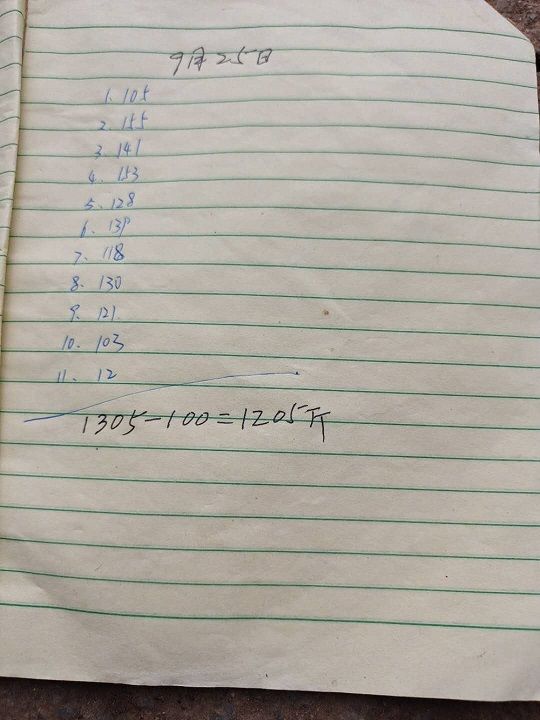 9月25日
1. 105
2. 155
3. 141
4. 153
5. 128
6. 139
7. 118
8. 130
9. 121
10. 103
11. 12
1305-100=1205斤